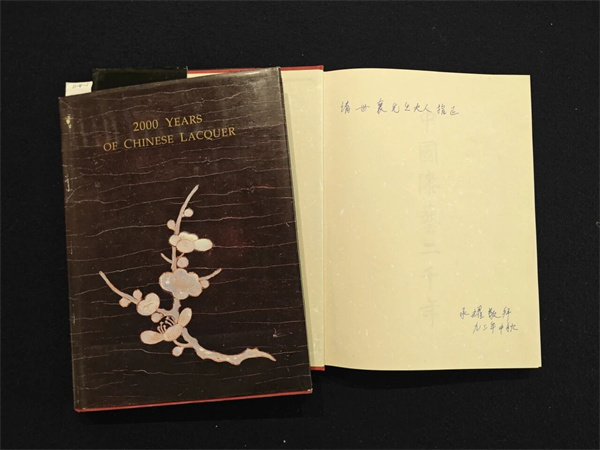 2000 YEARS
OF CHINESE LACQUER
請 世襄兄 夫人 指正
國漆藝二千年
耀 敬拜
九三年中秋